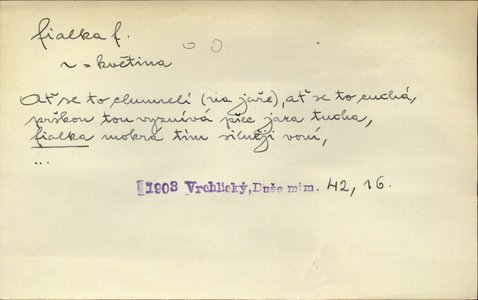 fialka f.
~ = květina
Ať se to chumelí (na jaře), ať se to cuchá,
prškou tou vyznívá přec jara tucha,
fialka mokrá tím silněji voní,
...
1903 Vrchlický, Duše mim. 42, 16.